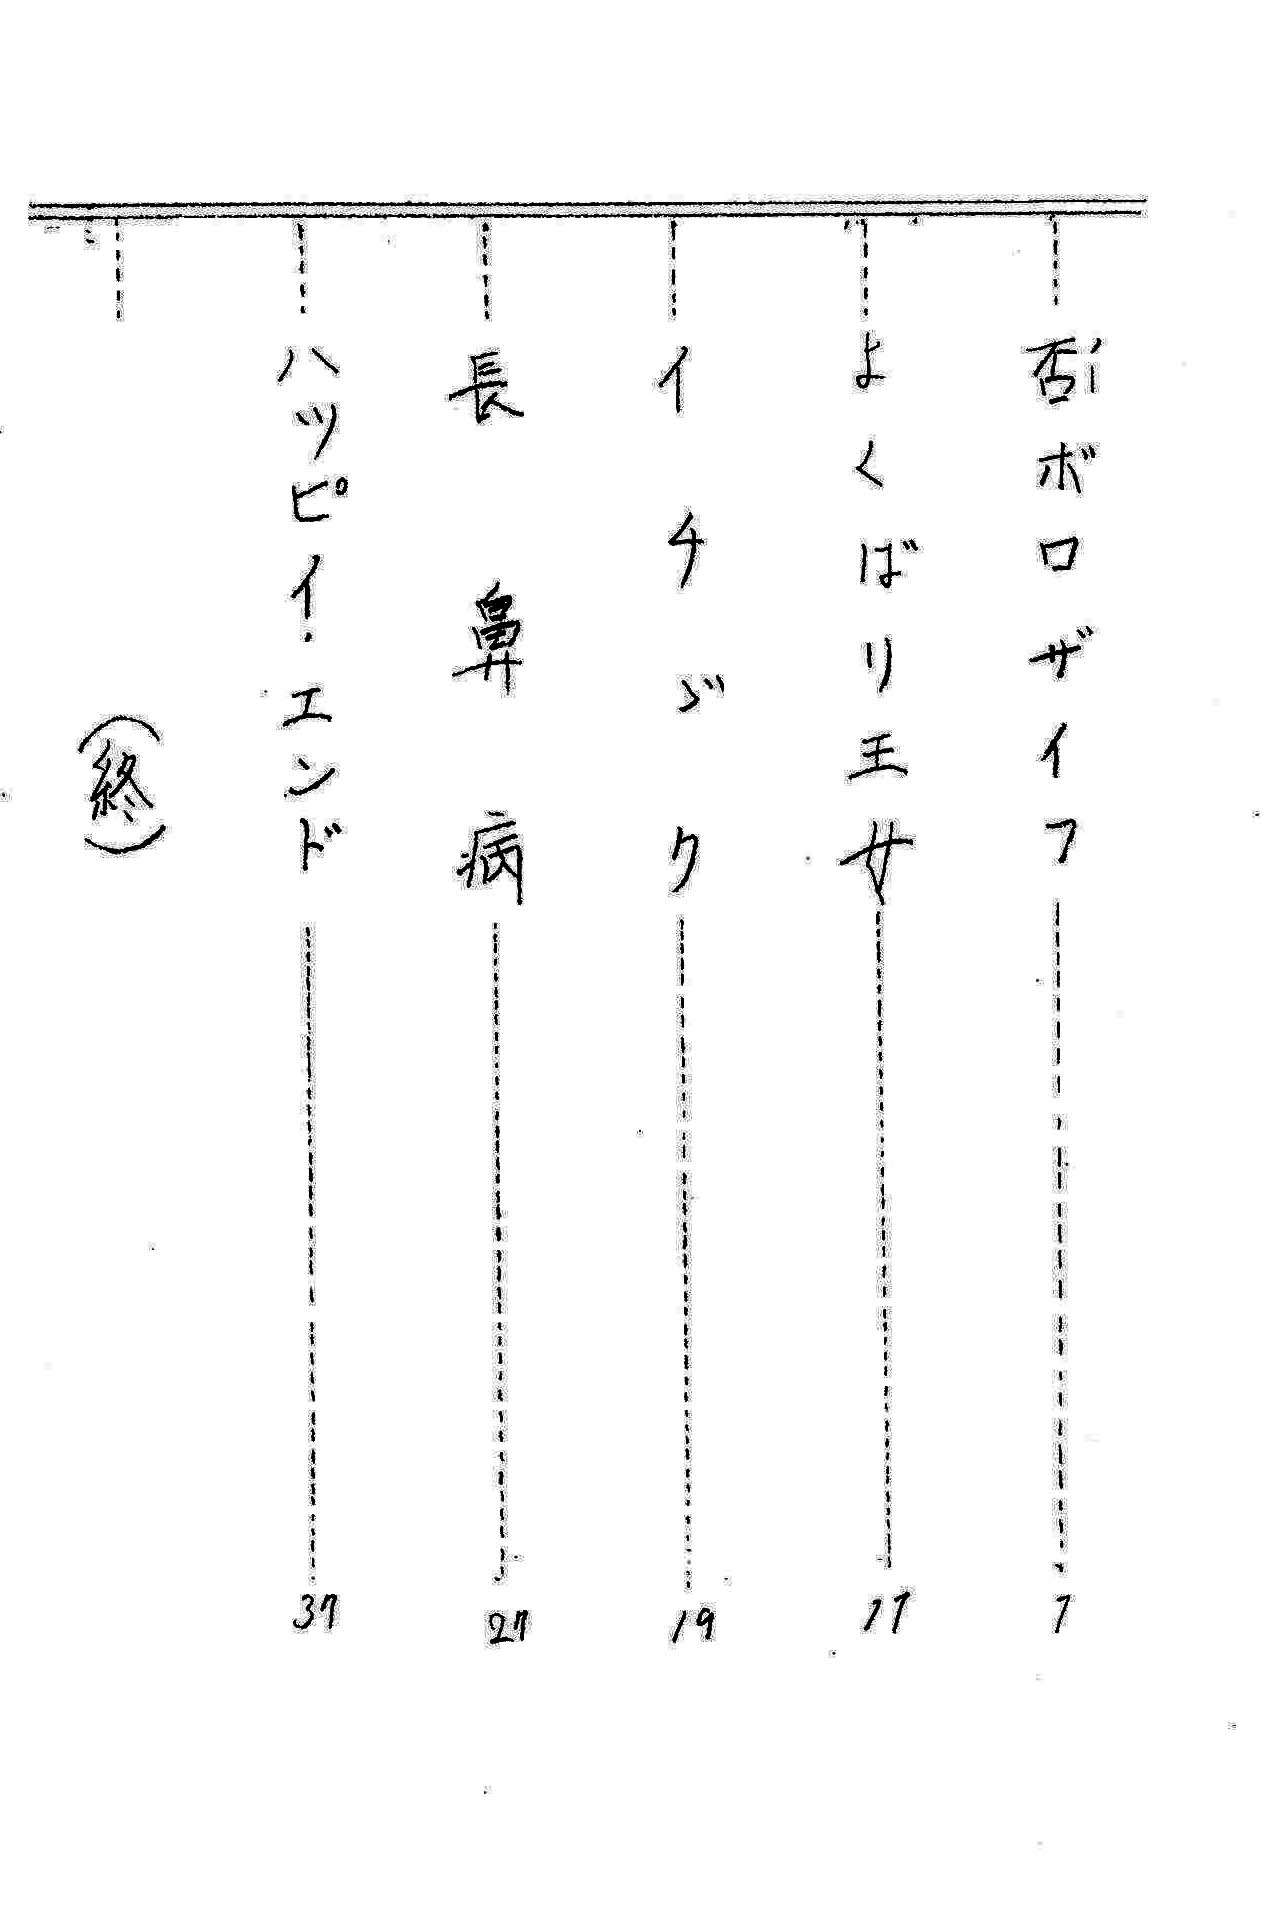 否ノーボロザイフ 1
よくばり王女 11
イチゞク 19
長鼻病 27
ハツピイ・エンド 37
（終）